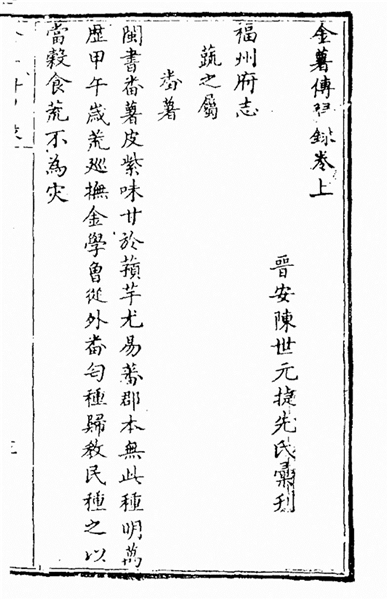 金薯傳習錄卷上
晉安陳世元捷先氏彙刊
福州府志
蔬之屬
番薯
閩書番薯皮紫味甘於蘋芋尤易蕃郡本無此種明萬
歷甲午歲荒巡撫金學曾從外番匄種歸敎民種之以
當穀食荒不為灾